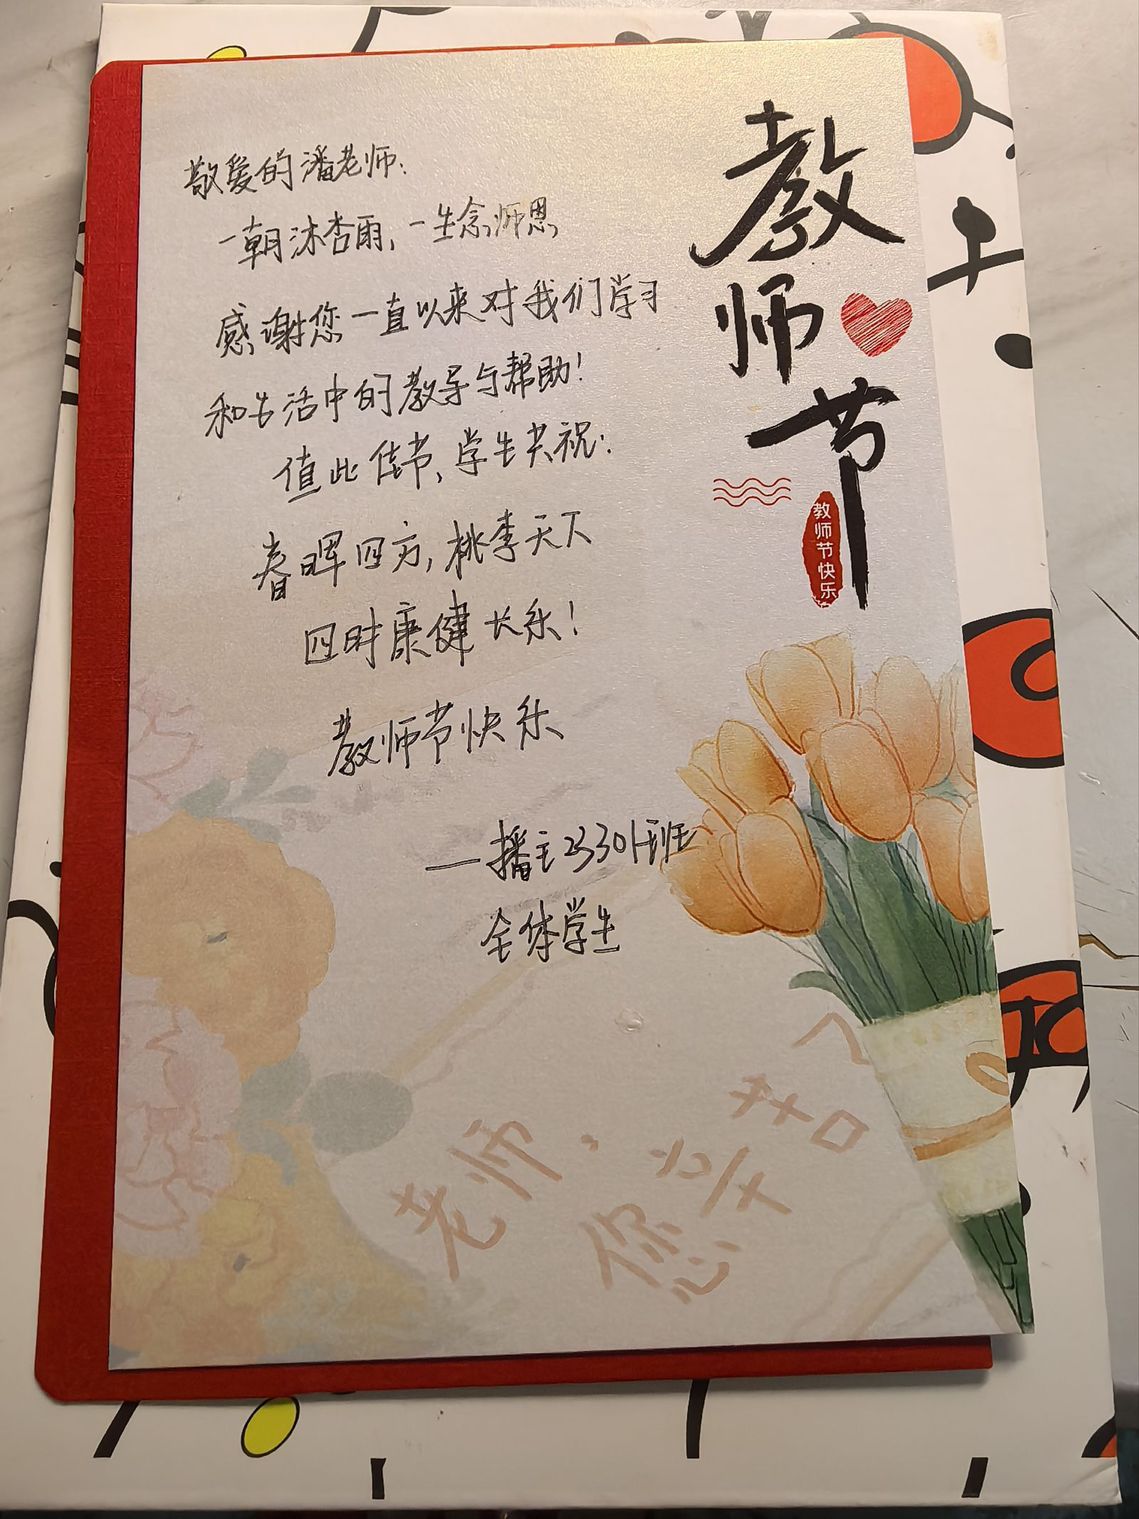 敬爱的潘老师:
一朝沐杏雨,一生念师恩
感谢您一直以来对我们学习
和生活中的教导与帮助!
值此佳节,学生共祝:
春晖四方,桃李天下
四时康健长乐!
教师节快乐
——播主23301班
全体学生
教
师
节
教师节快乐
老师,
您辛苦了